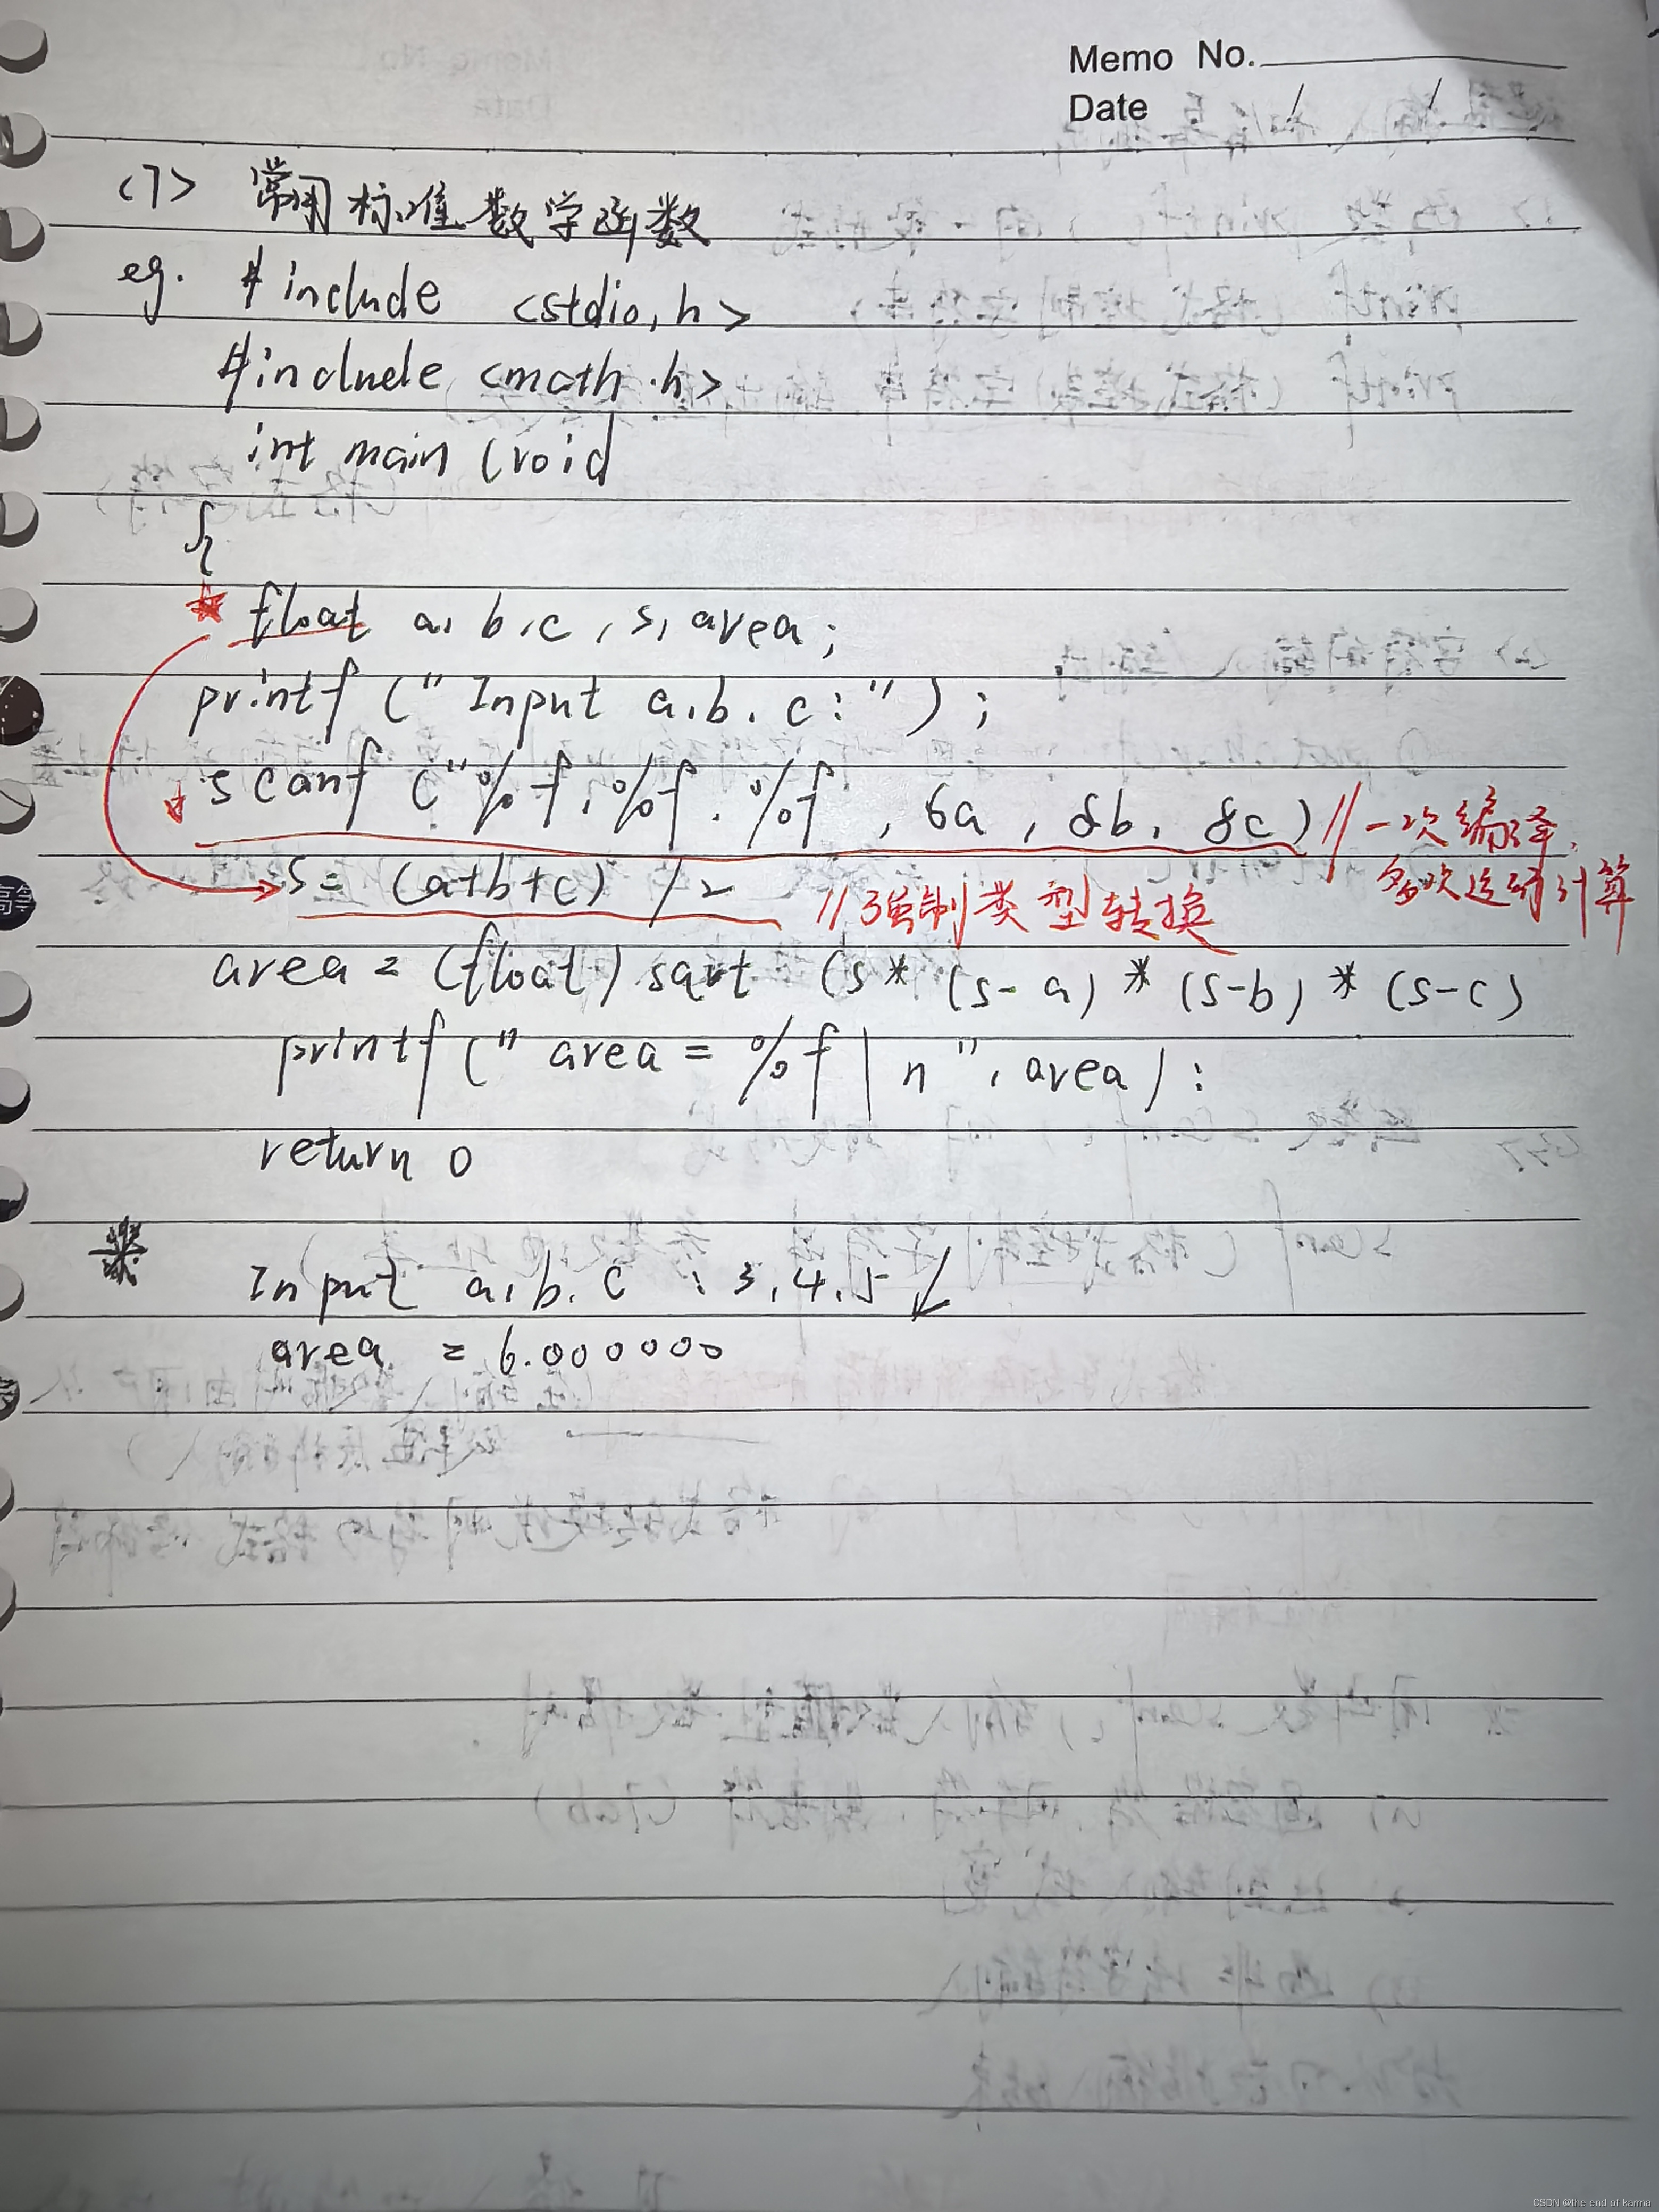 Memo No.
Date / /
<7> 常用标准数学函数
eg. #include <stdio.h>
#include <math.h>
int main (void
{
float a, b, c, s, area;
printf (" Input a, b, c : ") ;
scanf ("%f, %f, %f , &a , &b, &c) //一次编译,
多次运行计算
s = (a+b+c) /2 //强制类型转换
area = (float) sqrt (s * (s-a) * (s-b) * (s-c)
printf (" area = %f | n", area) :
return 0
* Input a, b, c : 3, 4, 5 ↙
area = 6.000000
高等
CSDN @the end of karma